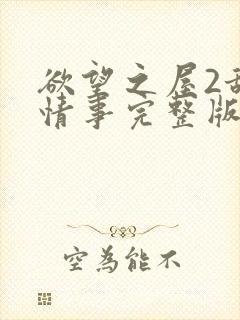 欲望之屋2
情事完整版
空為能不